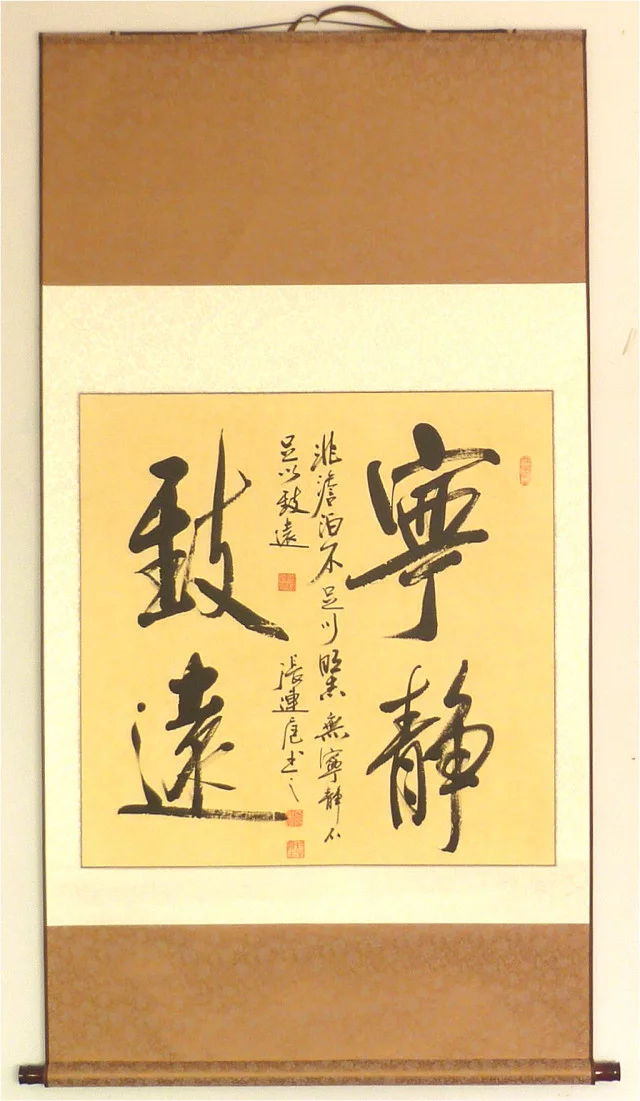 寧靜
致遠
非澹泊不足以明志無寧靜不
足以致遠
張連书之